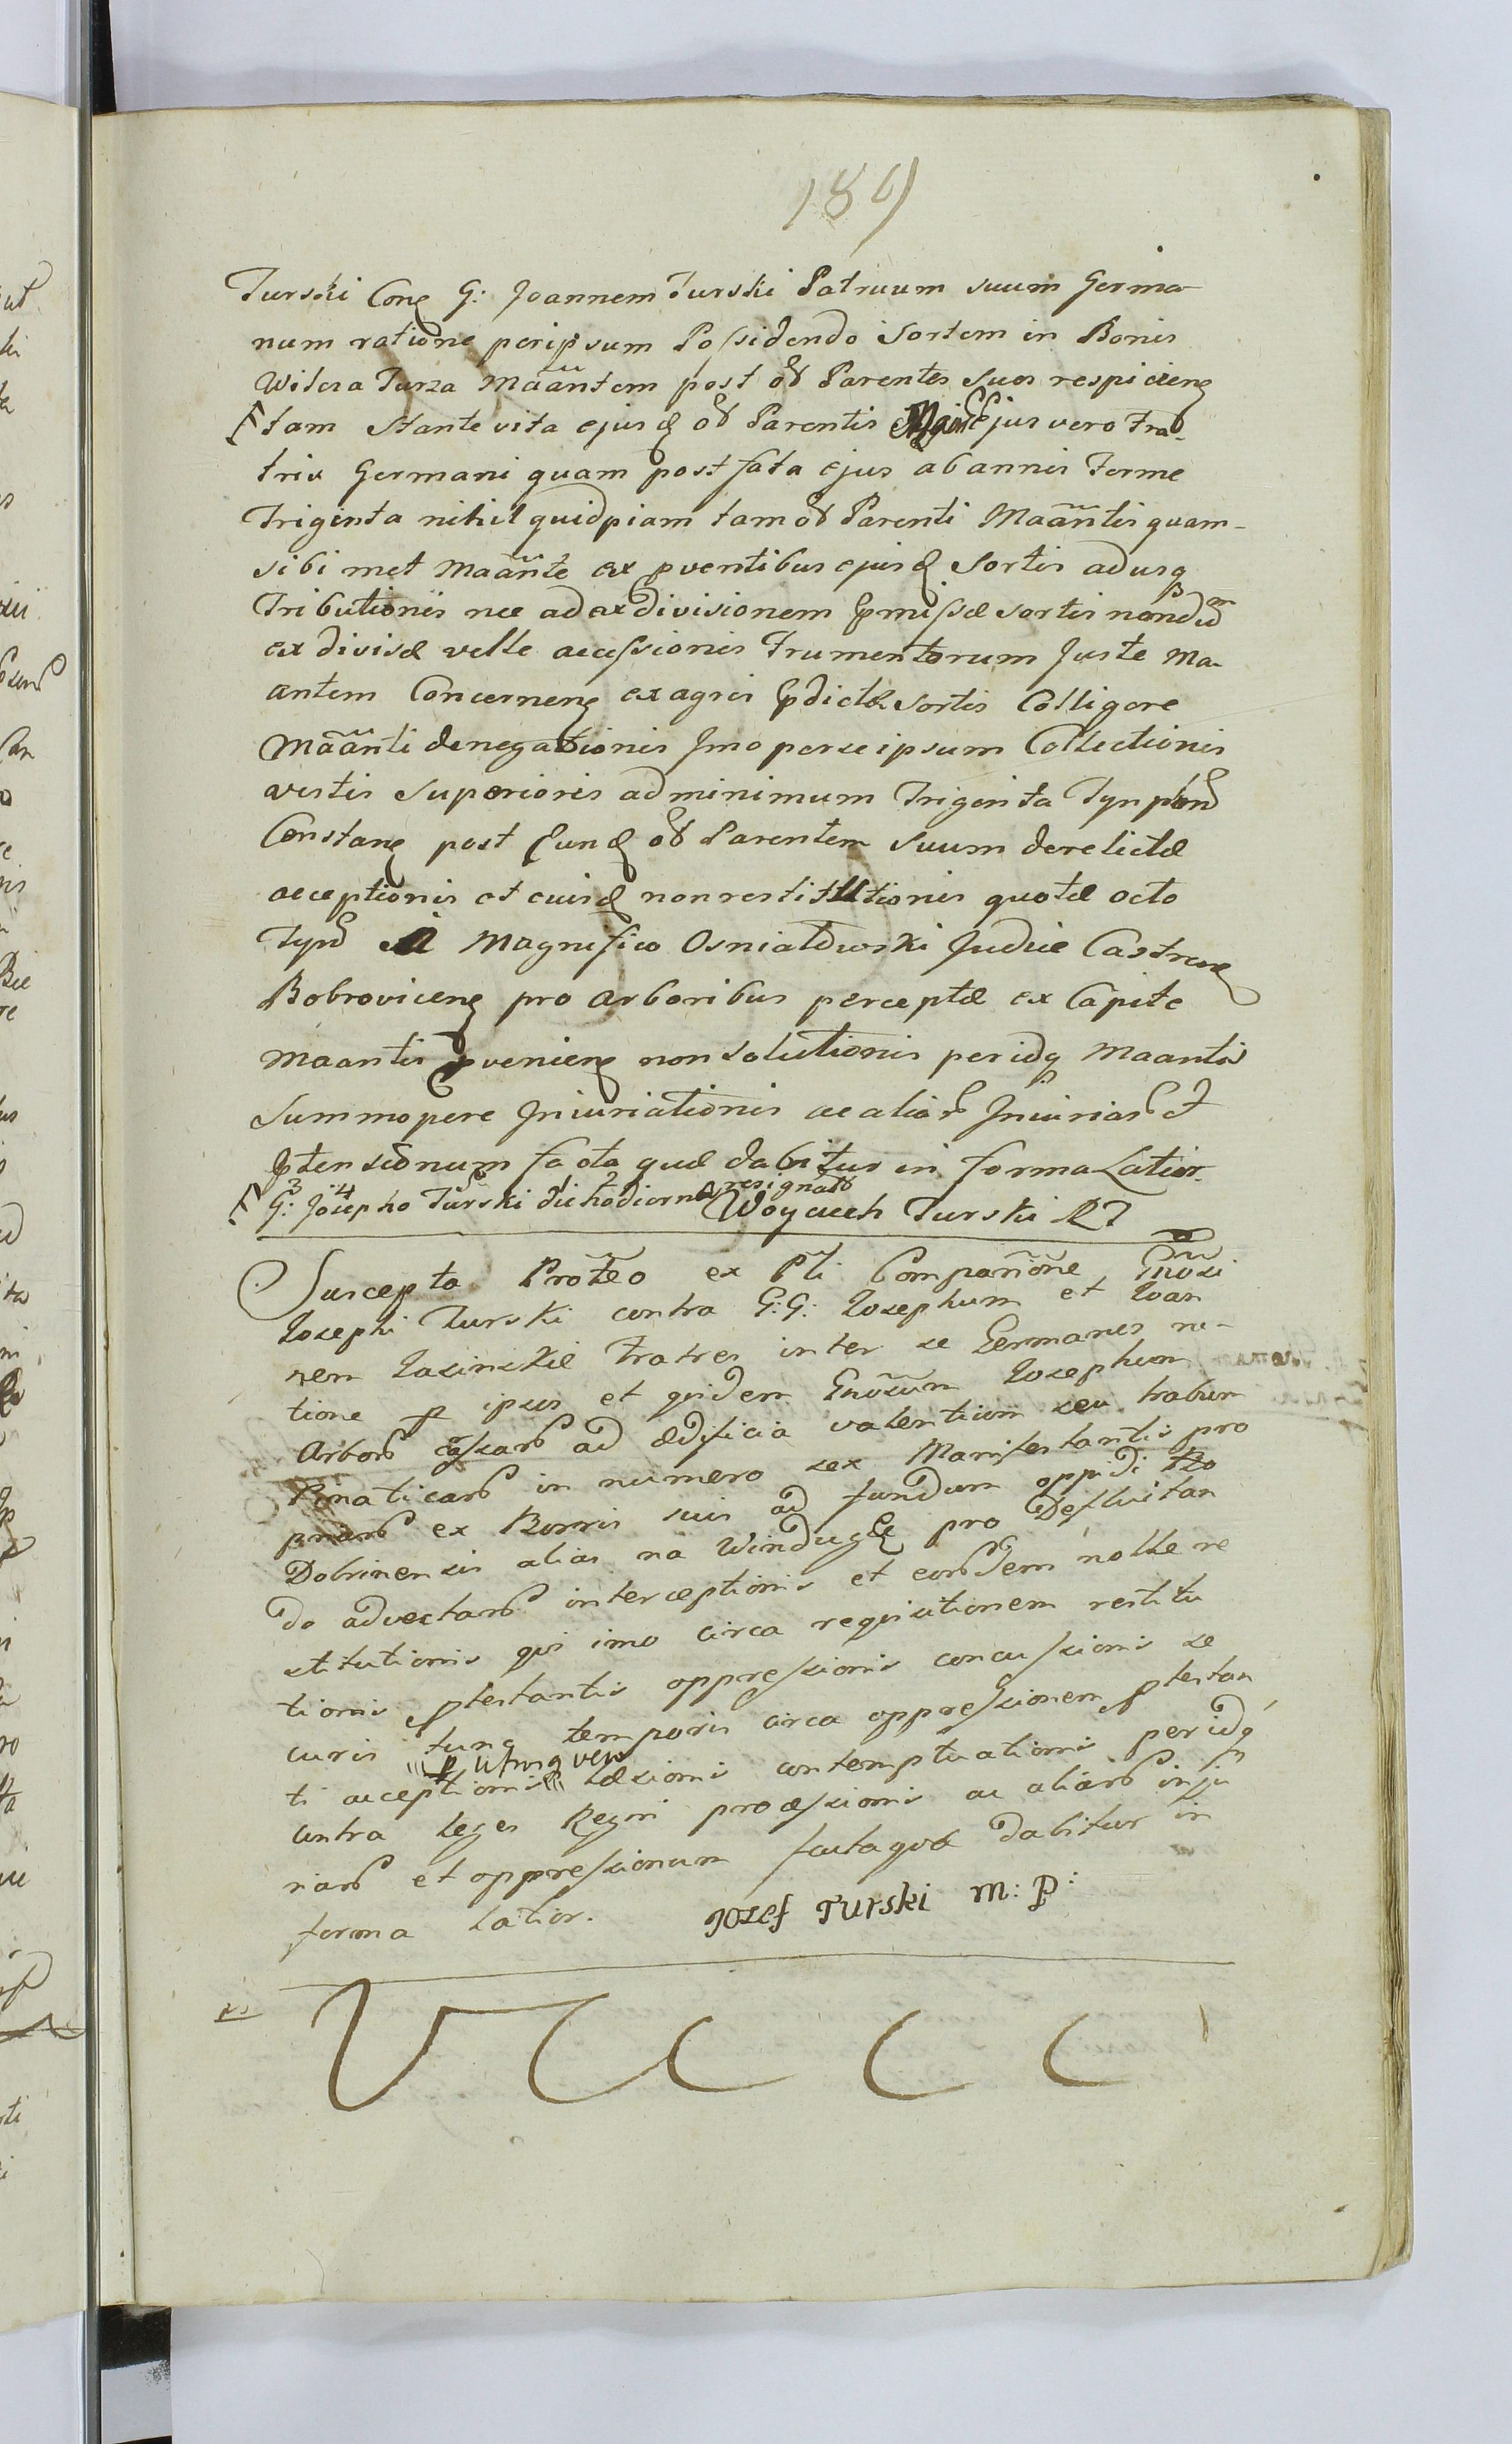 189
Turski Conq G: Joannem Turski Patruum suum Germa-
num ratione per ipsum Possidendo Sortem in Bonis
Witosa Turza Maantem post oł Parentes suos respicienq
tam stante vita ejusq oł Parentis ejus vero Fra-
tris Germani quam post fata ejus ab annis Ferme
Triginta nihil quidpiam tam oł Parenti Maantis quam-
sibi met Maante ex pventibus ejusq Sortis adusq
Tributionis nec ad exdivisionem pmissæ sortis nondum
ex divisæ velle accessionis Frumentorum juste Ma-
antem Concernenq ex agris pdictæ sortis Colligere
Maanti denegationis Jmo per se ipsum Collectionis
vestis Superioris ad minimum Triginta Tynphon
Constanq post Eunq oł Parentem suum derelictæ
acceptionis et eiusq non restitutionis quotæ octo
Tynph A Magnifico Osniałdwski Judice Castrenq
Bobrovicenq pro arboribus perceptæ ex Capite
Maantis pvenienq non solutionis per idq Maantis
Summopere Jniuriationis ac alior Jniuriar et
ptensionum facta quæ dabitur in forma Latior.
G: Josepho Turski die hodierna resignat
Woyciech Turski RT
Suscepta Proteo ex Pti Comparnone Gnosi
Josephi Turski contra G:G: Josephum et Joan
nem Jasinskie Fratres inter se Germanes ra-
tione p ipsos et quidem Gnosum Josephum
Arbor cæsar ad ædificia valentium seu trabum
in numero sex Manifestantis pro
ex Bonis suis ad fundum oppidi
Dobrinensis alias na Windugę pro Defluitan
do advectar interceptionis et eordem nolle re
stitutionis qui imo circa requisitionem restitu
tionis ptestantis oppressionis concussionis se
curis tunq temporis circa oppressionem ptestan
p utrumq vero
ti acceptionis læsionis contemptuationis per idq
contra leges Regni processionis ac aliar inju
riar et oppressionum facta quæ dabitur in
forma Latior. Jozef Turski M: P:
Vacc